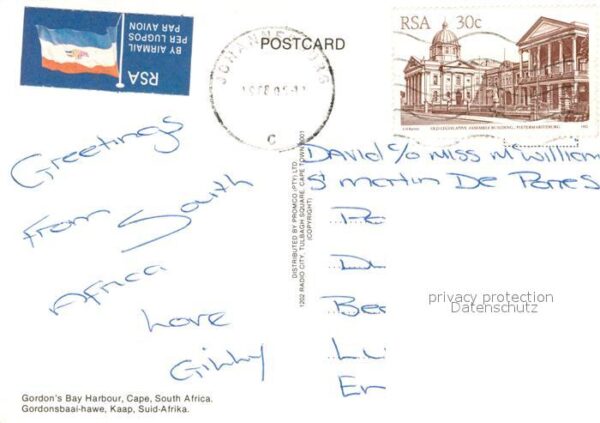 BY AIRMAIL
PER LUGPOS
PAR AVION
RSA
POSTCARD
RSA 30c
OLD LEGISLATIVE ASSEMBLY BUILDING, PIETERMARITZBURG
Greetings
From South
Africa
Love
David c/o Miss McWilliam
St Martin De Porres
Be
L
En
DISTRIBUTED BY PROMCO (PTY) LTD.
1202 RADIO CITY, TULBAGH SQUARE, CAPE TOWN 8001
(COPYRIGHT)
privacy protection
Datenschutz
Gordon's Bay Harbour, Cape, South Africa.
Gordonsbaai-hawe, Kaap, Suid-Afrika.